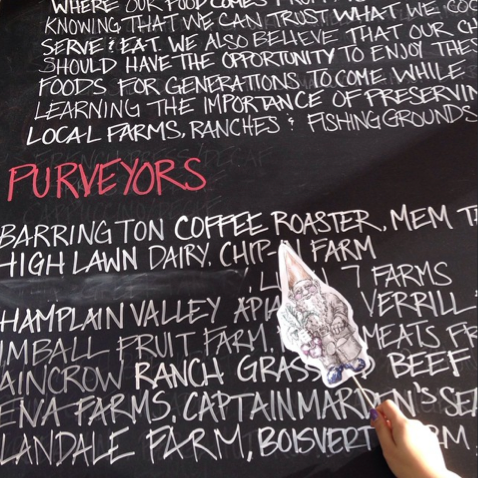 WHERE OUR FOOD COMES
KNOWING THAT WE CAN TRUST WHAT WE
SERVE & EAT. WE ALSO BELIEVE THAT OUR
SHOULD HAVE THE OPPORTUNITY TO ENJOY
FOODS FOR GENERATIONS TO COME WHILE
LEARNING THE IMPORTANCE OF
LOCAL FARMS, RANCHES & FISHING GROUNDS
PURVEYORS
BARRINGTON COFFEE ROASTER, MEM
HIGH LAWN DAIRY. FARM
7 FARMS
HAMPLAIN VALLEY VERRILL
IMBALL FRUIT FARM MEATS
AINCROW RANCH BEEF
ENA FARMS, CAPTAIN
LANDALE FARM, BOISVERT